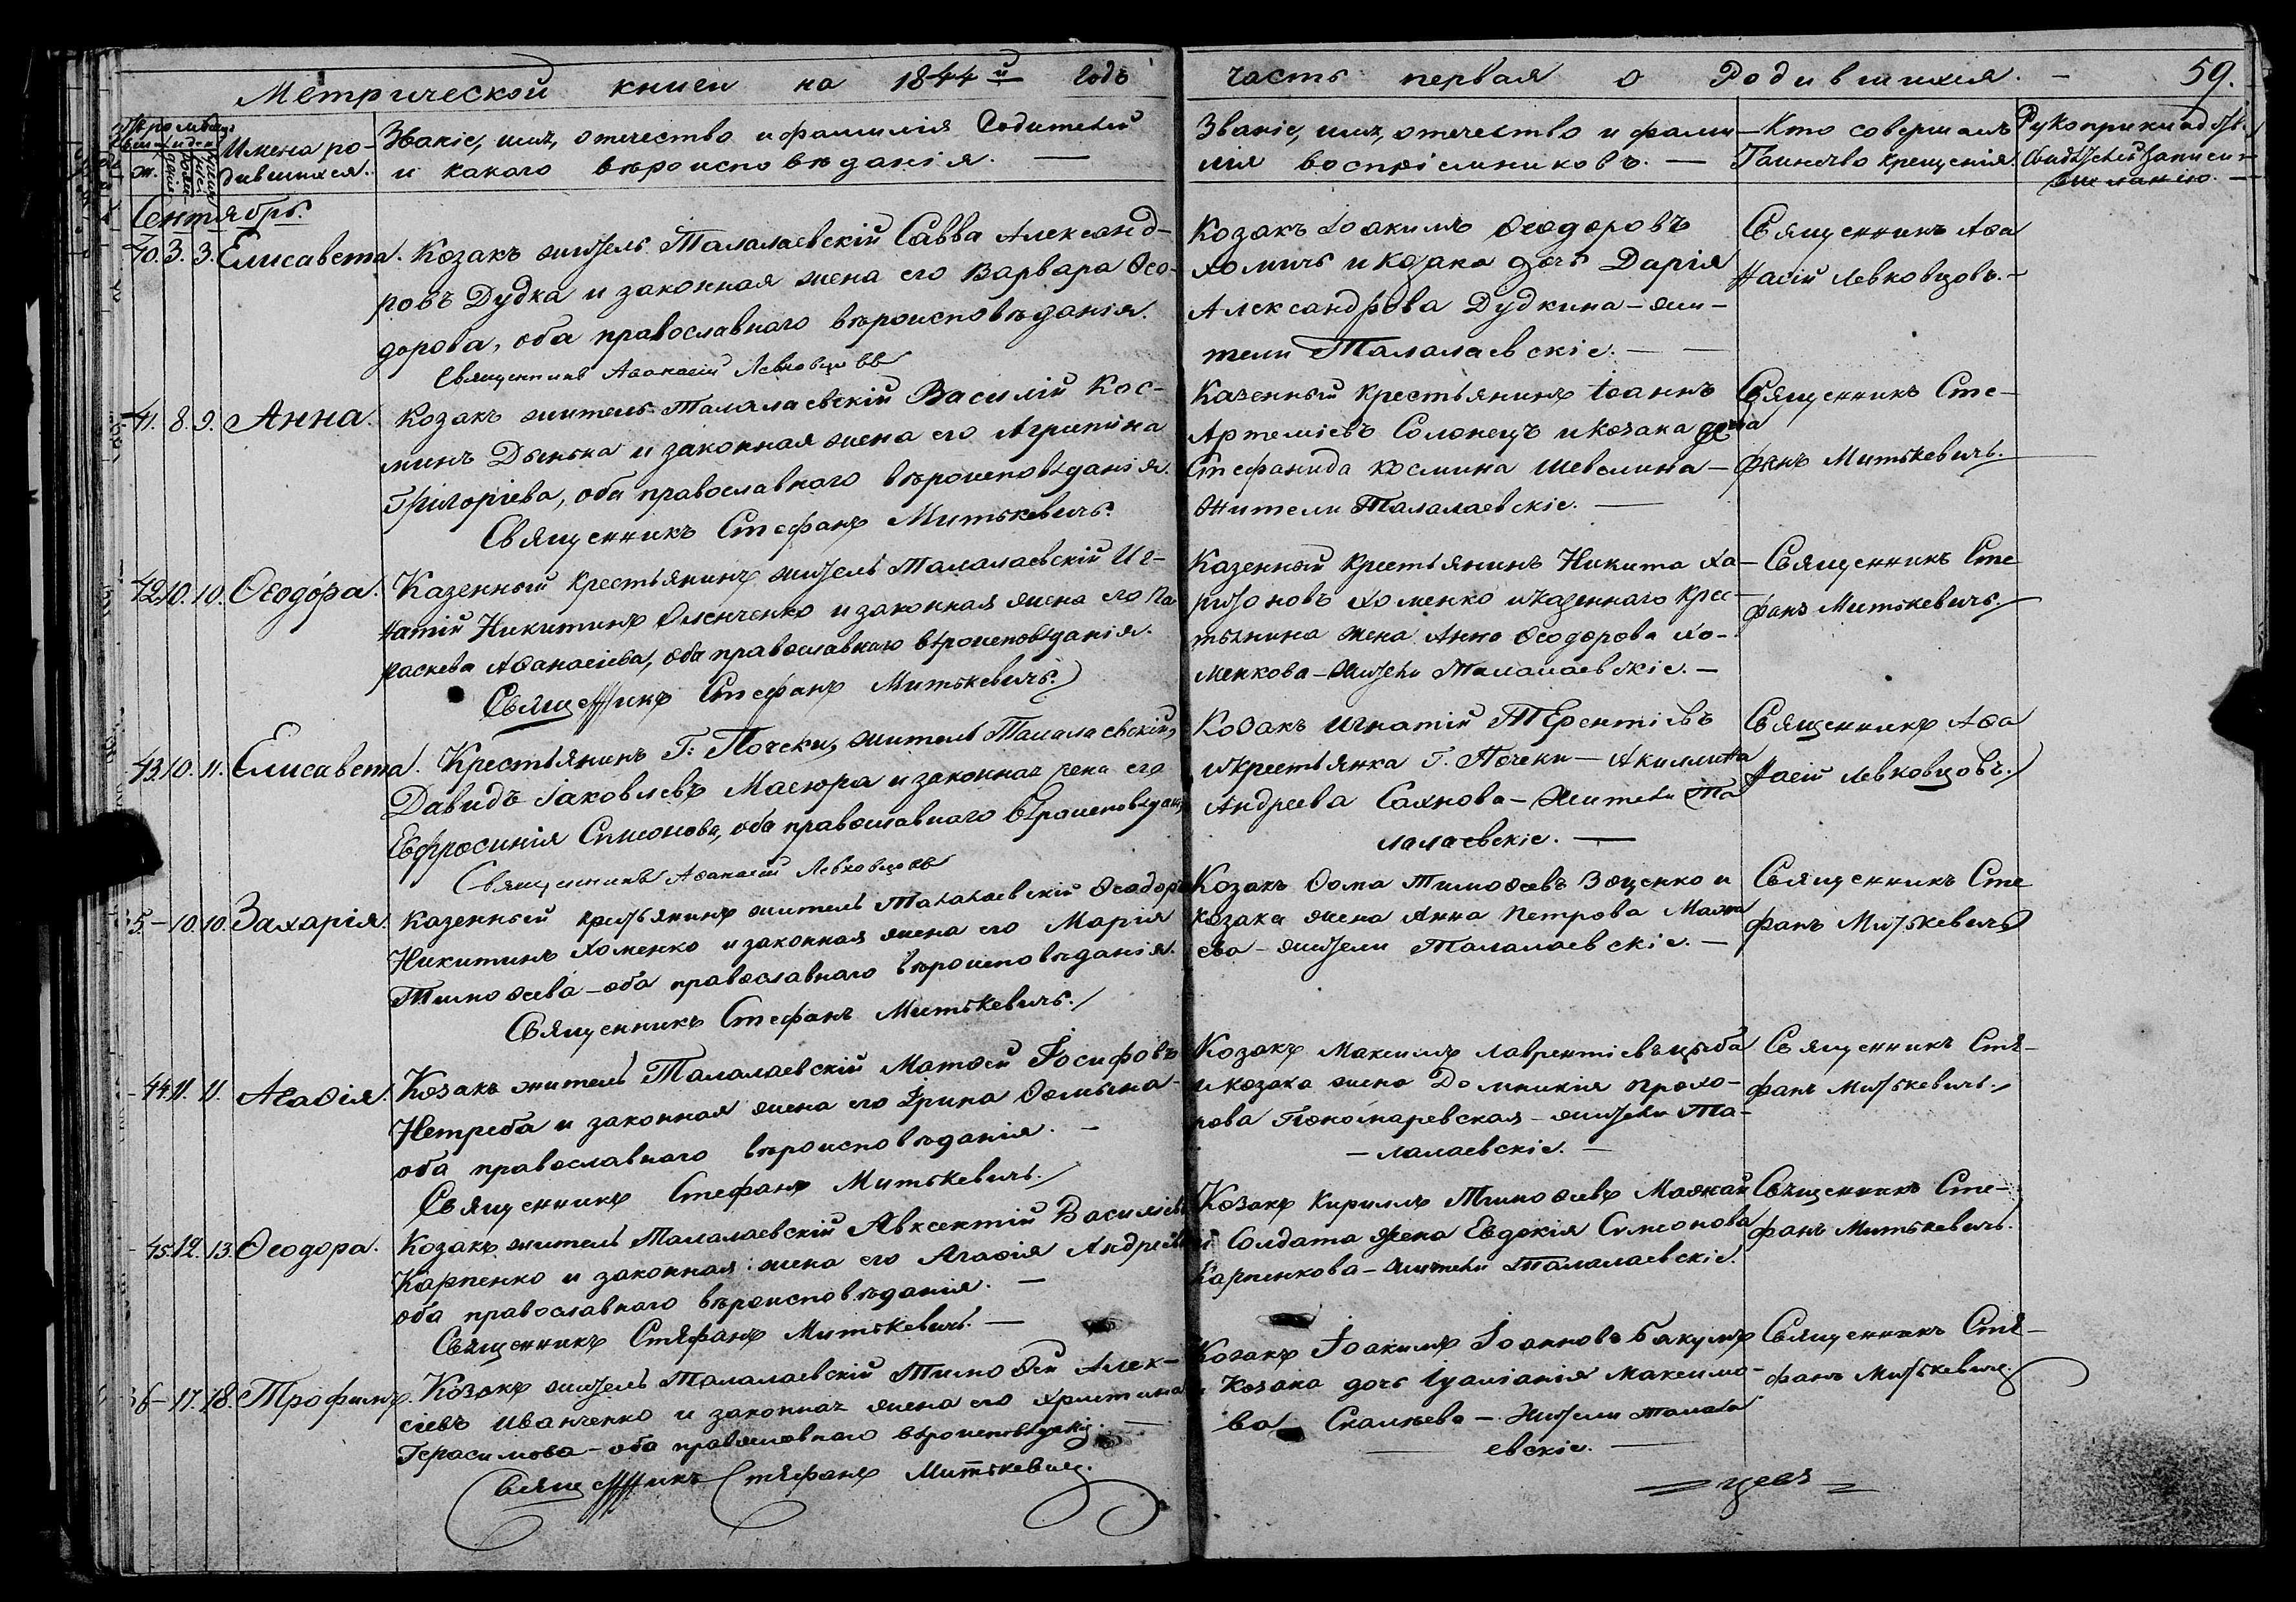 Метрической книги на 1844й годъ часть первая о Родившихся. 59.
Имена ро-
дившихся.
Званіе, имя, отечество и фамилія Родителей
и какого вѣроисповѣданія.
Званіе, имя, отечество и фами-
лія воспріемниковъ.
Кто совершалъ
Таинство крещенія.
Рукоприкладство
свидѣтелей записи
по желанію.
Сентябрь.
40. 3. 3. Елисавета.
Козакъ житель Талалаевскій Савва Александ-
ровъ Дудка и законная жена его Варвара Ѳео-
дорова, оба православнаго вѣроисповѣданія.
Священникъ Аѳанасій Левковцовъ
Козакъ Іоакимъ Ѳеодоровъ
Хомичъ и козака дочь Дарія
Александрова Дудкина - жи-
тели Талалаевскіе.
Священникъ Аѳа
насій Левковцовъ.
41. 8. 9. Анна.
Козакъ житель Талалаевскій Василій Кос-
минъ Дынька и законная жена его Агрипина
Григоріева, оба православнаго вѣроисповѣданія.
Священникъ Стефанъ Митькевичъ.
Казенный крестьянинъ Іоаннъ
Артеміевъ Солонецъ и козака
Стефанида Космина Шевелина -
жители Талалаевскіе.
Священникъ Сте-
фанъ Митькевичъ.
42. 10. 10. Ѳеодора.
Казенный крестьянинъ житель Талалаевскій Иг-
натій Никитинъ Оленченко и законная жена его Па-
раскева Аѳанасіева, оба православнаго вѣроисповѣданія.
Священникъ Стефанъ Митькевичъ.
Казенный крестьянинъ Никита Ха-
ритоновъ Хоменко и казеннаго крес-
тьянина жена Анна Ѳеодорова Хо-
менкова - жители Талалаевскіе.
Священникъ Сте
фанъ Митькевичъ.
43. 10. 11. Елисавета.
Крестьянинъ Г: Почеки, житель Талалаевскій,
Давидъ Іаковлевъ Масюра и законная жена его
Евфросинія Симонова, оба православнаго вѣроисповѣдан:
Священникъ Аѳанасій Левковцовъ
Козакъ Игнатій Терентіевъ
и крестьянка Г. Почеки - Акилина
Андреева Сахнова - жители Та
лалаевскіе.
Священникъ Аѳа
насій Левковцовъ.
35 - 10. 10. Захарія.
Казенный крестьянинъ житель Талалаевскій Ѳеодоръ
Никитинъ Хоменко и законная жена его Марія
Тимоѳеева - оба православнаго вѣроисповѣданія.
Священникъ Стефанъ Митькевичъ.
Козакъ Ѳома Тимоѳеевъ Зоценко и
козака жена Анна Петрова
ева - жители Талалаевскіе.
Священникъ Сте
фанъ Митькевичъ
44. 11. 11. Агаѳія.
Козакъ житель Талалаевскій Матѳей Іосифовъ
Нетреба и законная жена его Ірина Ѳомина -
оба православнаго вѣроисповѣданія.
Священникъ Стефанъ Митькевичъ.
Козакъ Максимъ Лаврентіевъ Цыба
и козака жена Домникія Прохо-
рова Пономаревская - жители Та-
лалаевскіе.
Священникъ Сте-
фанъ Митькевичъ.
45. 12. 13. Ѳеодора.
Козакъ житель Талалаевскій Авксентій Василіевъ
Карпенко и законная жена его Агаѳія Андреева
оба православнаго вѣроисповѣданія.
Священникъ Стефанъ Митькевичъ.
Козакъ Кирилъ Тимоѳеевъ
и Солдата жена Евдокія Симеонова
Карпенкова - жители Талалаевскіе.
Священникъ Сте-
фанъ Митькевичъ.
36 - 17. 18. Трофимъ.
Козакъ житель Талалаевскій Тимоѳей Алек-
сіевъ Иванченко и законная жена его Христина
Герасимова - оба православнаго вѣроисповѣданія.
Священникъ Стефанъ Митькевичъ.
Козакъ Іоакимъ Іоанновъ Бакумъ
и Козака дочь Іуліанія Максимо-
ва - жители Талала
евскіе.
Священникъ Сте-
фанъ Митькевичъ